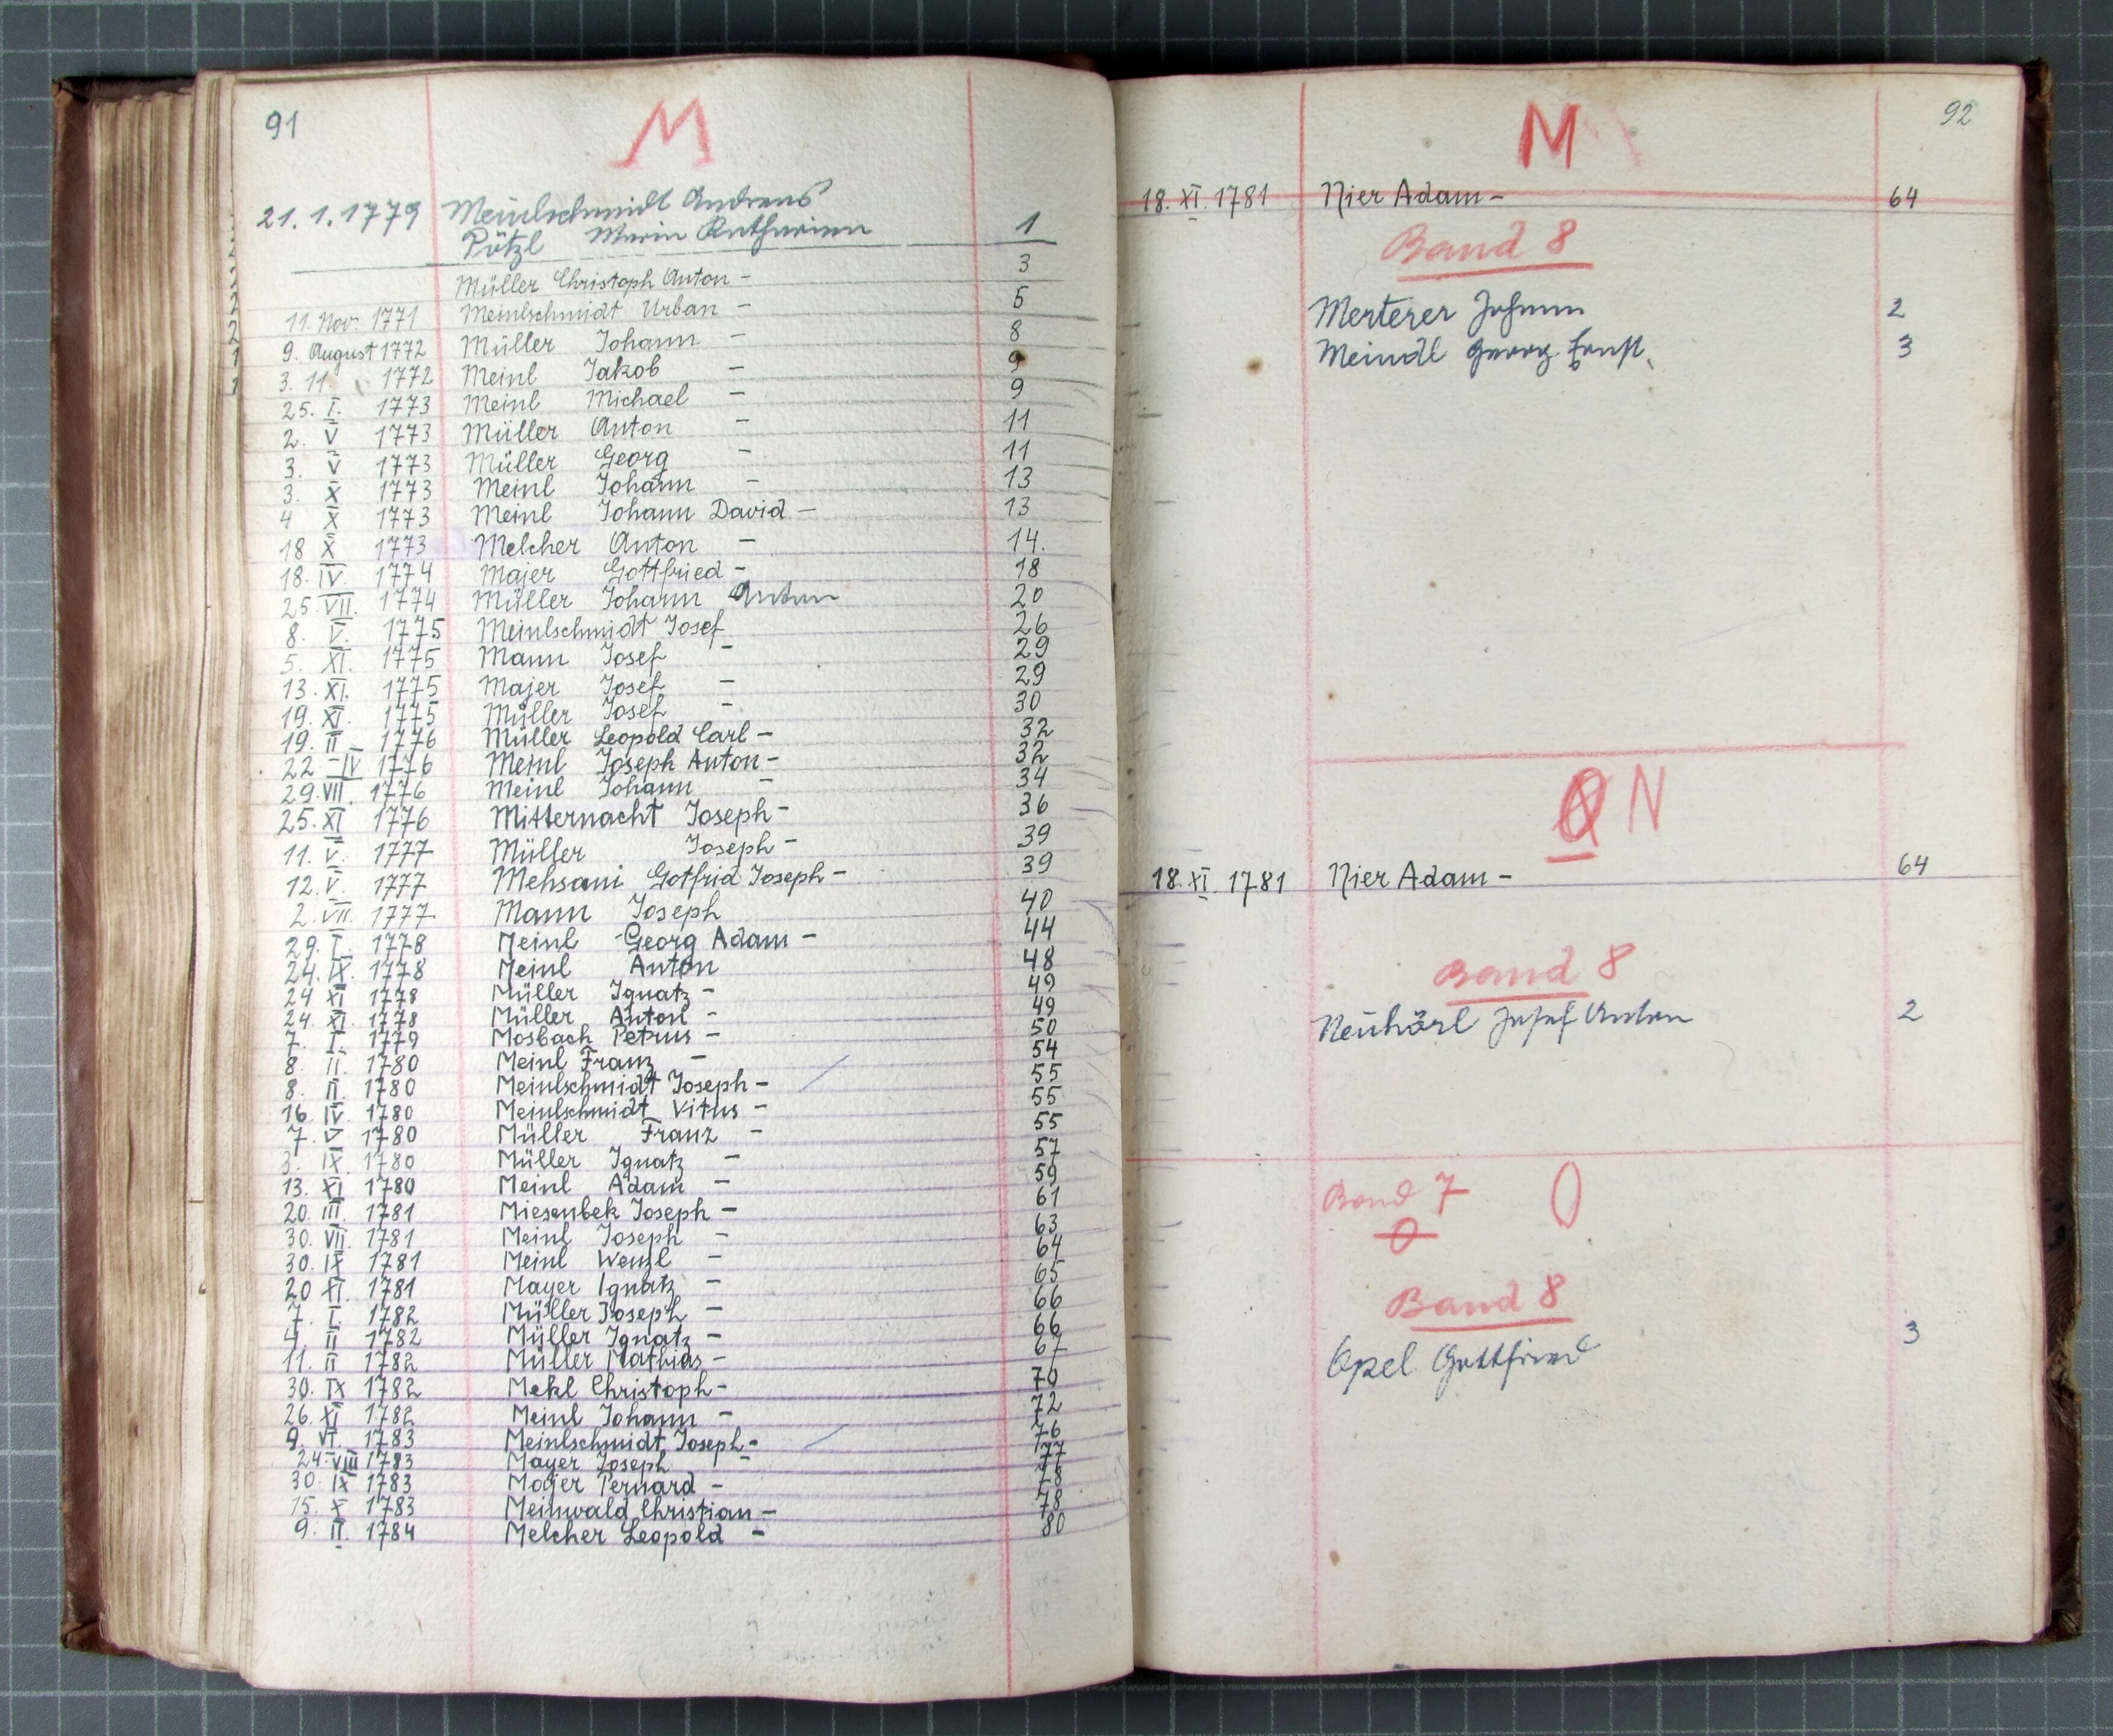 91
M
21. 1. 1779 Meinlschmidt Andreas
Pötzl Maria Katharina 1
Müller Christoph Anton - 3
11. Nov. 1771 Meinlschmidt Urban - 5
9. August 1772 Müller Johann - 8
3. 11. 1772 Meinl Jakob - 9
25. I. 1773 Meinl Michael - 9
2. V 1773 Müller Anton - 11
3. V 1773 Müller Georg - 11
3. X 1773 Meinl Johann - 13
4 X 1773 Meinl Johann David - 13
18 X 1773 Melcher Anton - 14.
18. IV. 1774 Majer Gottfried - 18
25. VII. 1774 Müller Johann Anton 20
8. V. 1775 Meinlschmidt Josef 26
5. XI. 1775 Mann Josef - 29
13. XI. 1775 Majer Josef - 29
19. XI. 1775 Müller Josef - 30
19. II 1776 Müller Leopold Carl - 32
22 IV 1776 Meinl Joseph Anton - 32
29. VII. 1776 Meinl Johann - 34
25. XI 1776 Mitternacht Joseph - 36
11. V. 1777 Müller Joseph - 39
12. V. 1777 Mehsani Gotfrid Joseph - 39
2. VII. 1777 Mann Joseph 40
29. I. 1778 Meinl Georg Adam - 44
24. IX. 1778 Meinl Anton 48
24 XI 1778 Müller Ignatz - 49
24. XI. 1778 Müller Anton - 49
7. I. 1779 Mosbach Petrus - 50
8. II. 1780 Meinl Franz - 54
8. II. 1780 Meinlschmidt Joseph - 55
16. IV. 1780 Meinlschmidt Vitus - 55
7. V 1780 Müller Franz - 55
3. IX. 1780 Müller Ignatz - 57
13. XI 1780 Meinl Adam - 59
20. III. 1781 Miesenbek Joseph - 61
30. VII. 1781 Meinl Joseph - 63
30. IX 1781 Meinl Wenzl - 64
20 XI. 1781 Mayer Ignatz - 65
7. I. 1782 Müller Joseph - 66
4. II 1782 Müller Ignatz - 66
11. II 1782 Müller Mathias - 67
30. IX 1782 Mekl Christoph - 70
26. XI 1782 Meinl Johann - 72
9. VI. 1783 Meinlschmidt Joseph - 76
24. VIII 1783 Mayer Joseph - 77
30. IX 1783 Mojer Pernard - 78
15. X 1783 Meinwald Christian - 78
9. II. 1784 Melcher Leopold - 80
92
M
18. XI. 1781 Nier Adam - 64
Band 8
Merterer Johann 2
Meindl Georg Ernst 3
N
18. XI. 1781 Nier Adam - 64
Band 8
Neuhörl Josef Anton 2
Band 7 O
O
Band 8
Opel Gottfried 3